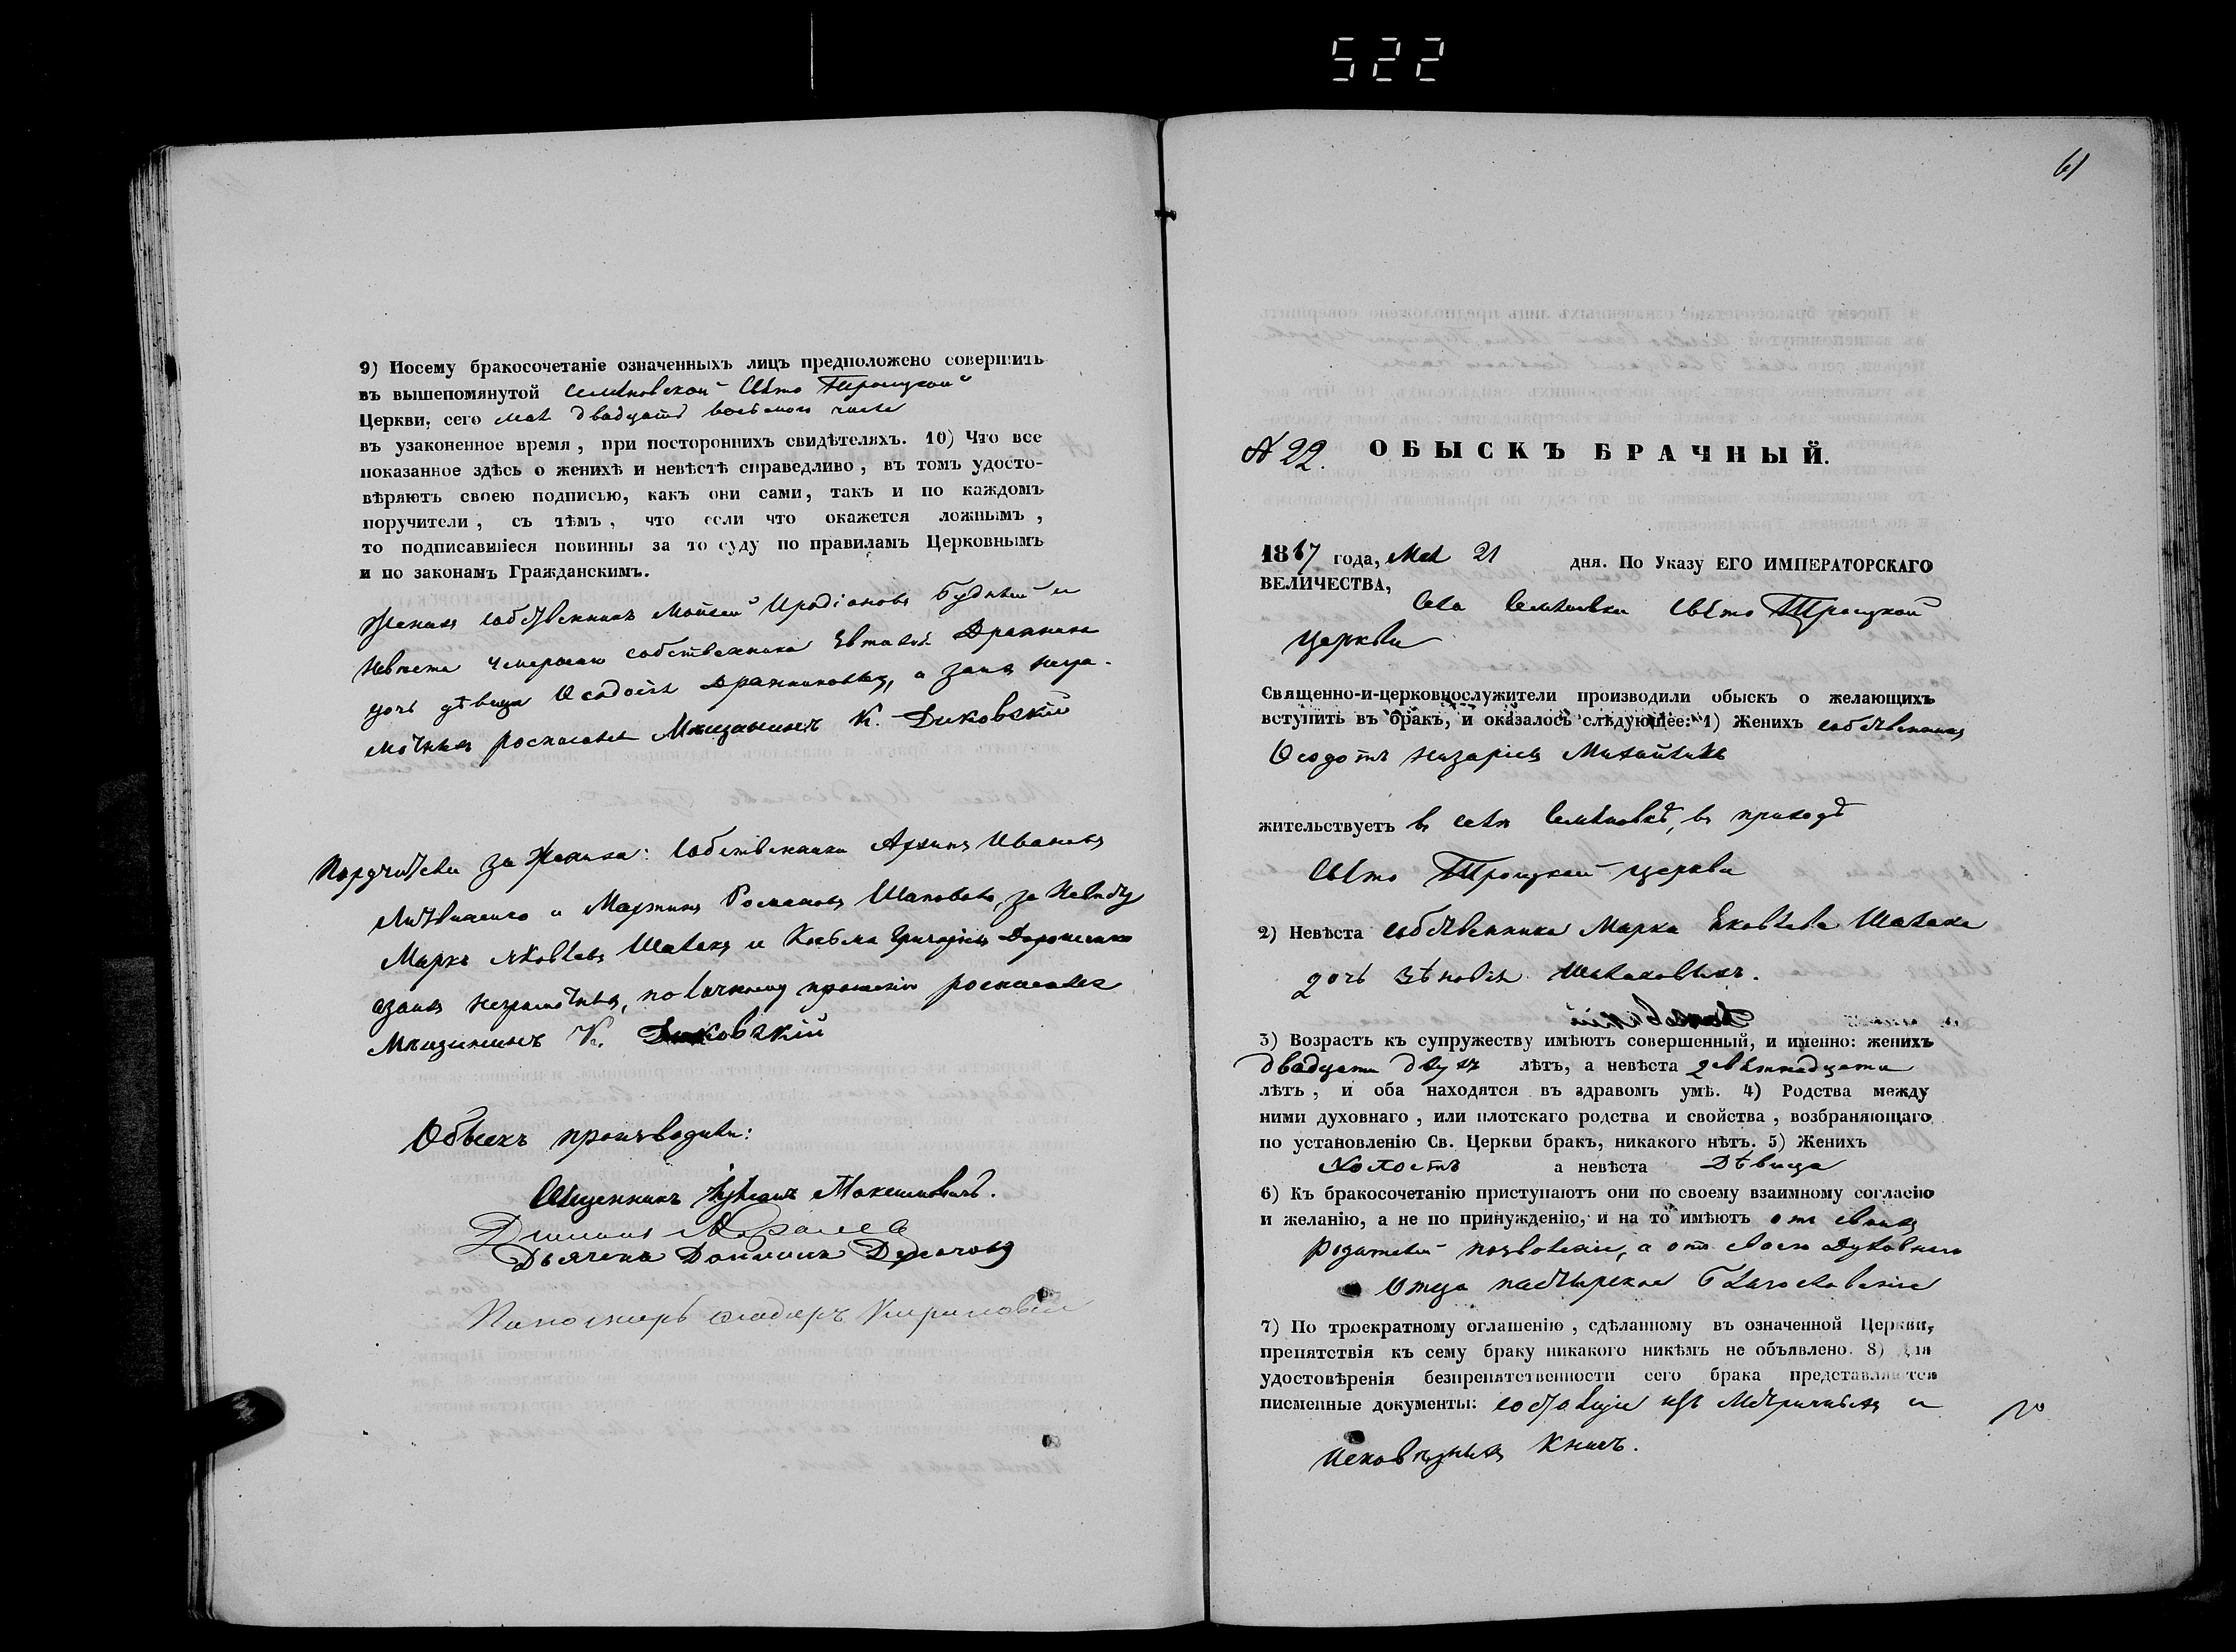 522
9) Посему бракосочетаніе означенныхъ лицъ предположено совершить
въ вышепомянутой Семёновской Свѣто Троицкой
Церкви, сего мая двадцать восьмого числа
въ узаконенное время, при постороннихъ свидѣтеляхъ. 10) Что все
показанное здѣсь о женихѣ и невѣстѣ справедливо, въ томъ удосто-
вѣряютъ своею подписью, какъ они сами, такъ и по каждомъ
поручители, съ тѣмъ, что если что окажется ложнымъ,
то подписавшіеся повинны за то суду по правиламъ Церковнымъ
и по законамъ Гражданскимъ.
Женихъ собственникъ Мойсей Иродіоновъ
Невѣста собственника
дочь дѣвица Ѳеодосія а заихъ негра-
мотныхъ росписался Мещанинъ К. Диковскій
Поручители за Жениха: собственники Архипъ Ивановъ
и Мартинъ Романовъ Шаповалъ, за Невѣсту
Маркъ Яковлевъ Шалахъ и Косьма Григоріевъ Дорошенко
азаихъ неграмотныхъ, по личному прошенію росписался
Мещанинъ К. Диковскій
Обыскъ производили:
Священникъ Максимовичъ.
Дьячекъ
Пономарь
61
№ 22. ОБЫСКЪ БРАЧНЫЙ.
1867 года, Мая 21 дня. По Указу ЕГО ИМПЕРАТОРСКАГО
ВЕЛИЧЕСТВА,
Села Семёновки Свѣто Троицкой
церкви
Священно-и-церковнослужители производили обыскъ о желающихъ
вступить въ бракъ, и оказалось слѣдующее: 1) Женихъ собственникъ
Ѳеодотъ Назаріевъ
жительствуетъ въ селѣ Семёновкѣ, въ приходѣ
Свѣто Троицкой церкви
2) Невѣста собственника Марка Яковлева Шалаха
дочь Зѣновія Шалаховыхъ.
3) Возрастъ къ супружеству имѣютъ совершенный, и именно: женихъ
двадцати двухъ лѣтъ, а невѣста девятнадцати
лѣтъ, и оба находятся въ здравомъ умѣ. 4) Родства между
ними духовнаго, или плотскаго родства и свойства, возбраняющаго
по установленію Св. Церкви бракъ, никакого нѣтъ. 5) Женихъ
Холостъ а невѣста Дѣвица
6) Къ бракосочетанію приступаютъ они по своему взаимному согласію
и желанію, а не по принужденію, и на то имѣютъ отъ своихъ
родителей позволеніе, а отъ своего Духовнаго
Отца пастырское Благословеніе
7) По троекратному оглашенію, сдѣланному въ означенной Церкви,
препятствія къ сему браку никакого никѣмъ не объявлено. 8) Для
удостовѣренія безпрепятственности сего брака представляются
писменные документы: состоящіе изъ Мѣтричныхъ и
исповѣдныхъ Книгъ.